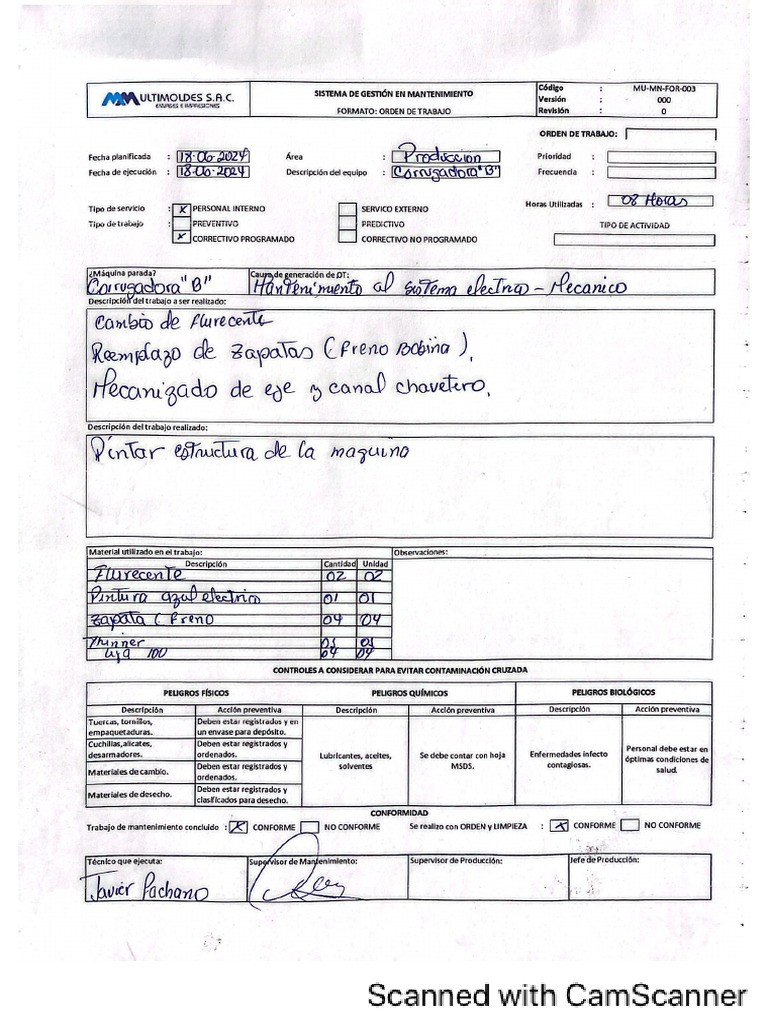 MULTIMOLDES S.A.C.
ENVASES E IMPRESIONES
SISTEMA DE GESTIÓN EN MANTENIMIENTO
FORMATO: ORDEN DE TRABAJO
Código : MU-MN-FOR-003
Versión : 000
Revisión : 0
ORDEN DE TRABAJO:
Fecha planificada : 18-06-2024 Área : Produccion Prioridad :
Fecha de ejecución : 18-06-2024 Descripción del equipo : Corrugadora "B" Frecuencia :
Horas Utilizadas : 08 Horas
Tipo de servicio : X PERSONAL INTERNO SERVICO EXTERNO
Tipo de trabajo : PREVENTIVO PREDICTIVO TIPO DE ACTIVIDAD
X CORRECTIVO PROGRAMADO CORRECTIVO NO PROGRAMADO
¿Máquina parada? Causa de generación de OT:
Corrugadora "B" Mantenimiento al sistema electrico - Mecanico
Descripción del trabajo a ser realizado:
Cambio de flurecente
Reemplazo de zapatas (freno Bobina).
Mecanizado de eje y canal chavetero.
Descripción del trabajo realizado:
Pintar estructura de la maquina
Material utilizado en el trabajo: Observaciones:
Descripción Cantidad Unidad
Flurecente 02 02
Pintura azul electrico 01 01
Zapata (freno 04 04
Thinner
100 04 04
CONTROLES A CONSIDERAR PARA EVITAR CONTAMINACIÓN CRUZADA
PELIGROS FÍSICOS PELIGROS QUÍMICOS PELIGROS BIOLÓGICOS
Descripción Acción preventiva Descripción Acción preventiva Descripción Acción preventiva
Tuercas, tornillos, empaquetaduras. Deben estar registrados y en un envase para depósito.
Cuchillas,alicates, desarmadores. Deben estar registrados y ordenados.
Materiales de cambio. Deben estar registrados y ordenados.
Materiales de desecho. Deben estar registrados y clasificados para desecho.
Lubricantes, aceites, solventes Se debe contar con hoja MSDS.
Enfermedades infecto contagiosas. Personal debe estar en óptimas condiciones de salud.
CONFORMIDAD
Trabajo de mantenimiento concluido : X CONFORME NO CONFORME Se realizo con ORDEN y LIMPIEZA : X CONFORME NO CONFORME
Técnico que ejecuta: Supervisor de Mantenimiento: Supervisor de Producción: Jefe de Producción:
Javier Pachano
Scanned with CamScanner